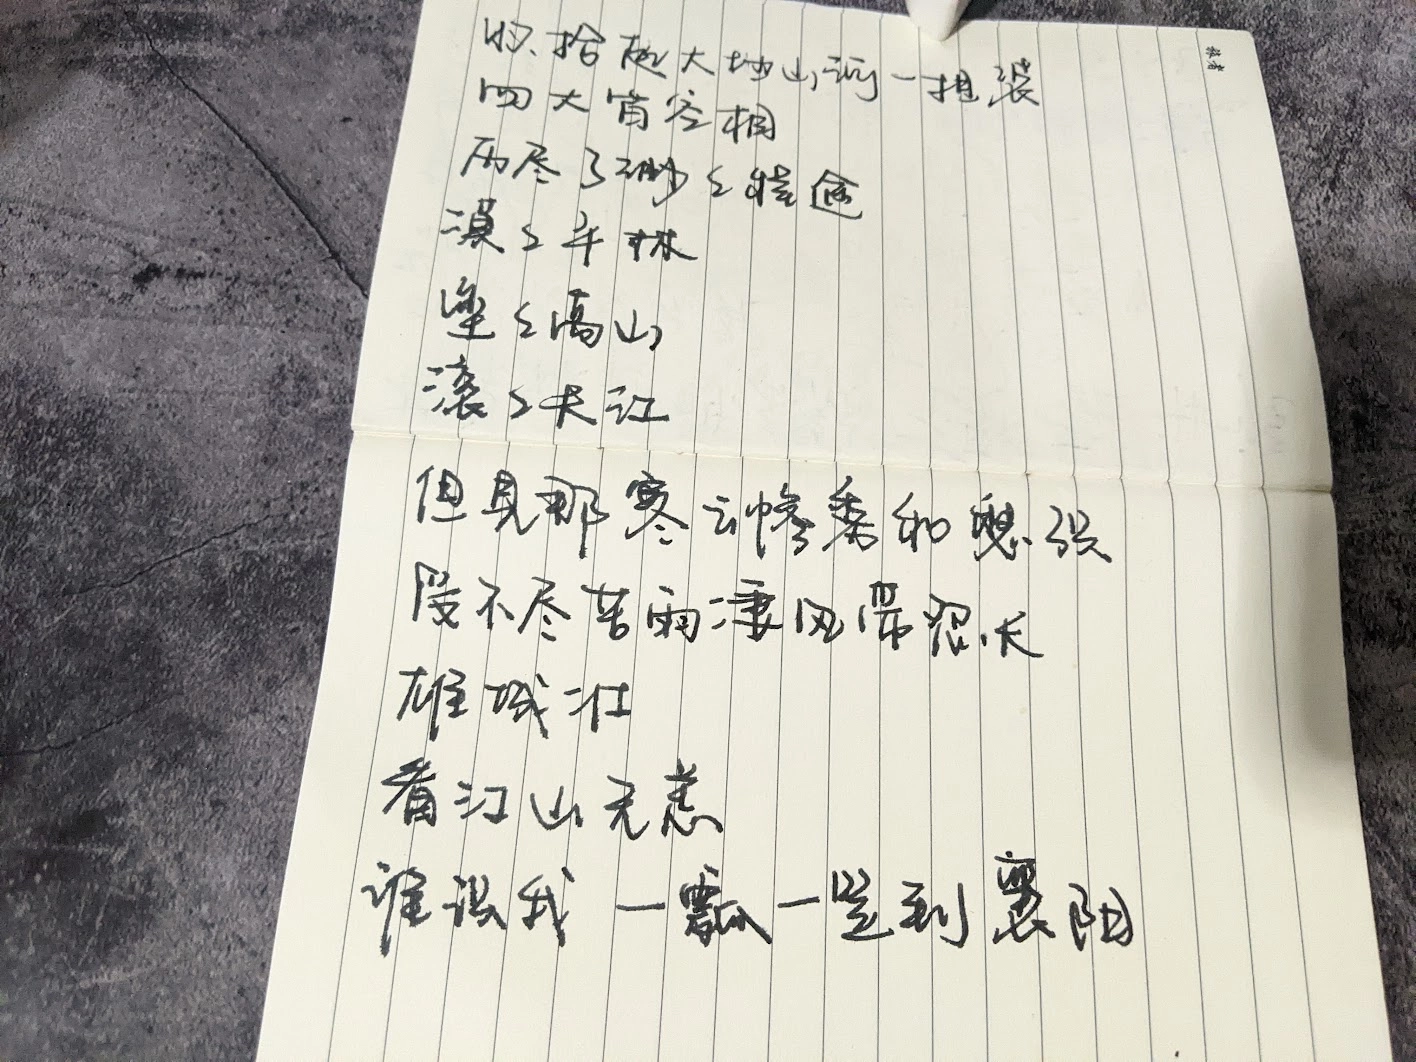 收拾起大地山河一担装
四大皆空相
历尽了渺々程途
漠々平林
垒々高山
滚々长江
但见那寒云惨雾和愁织
受不尽苦雨凄风带怨长
雄城壮
看江山无恙
谁识我一瓢一笠到襄阳